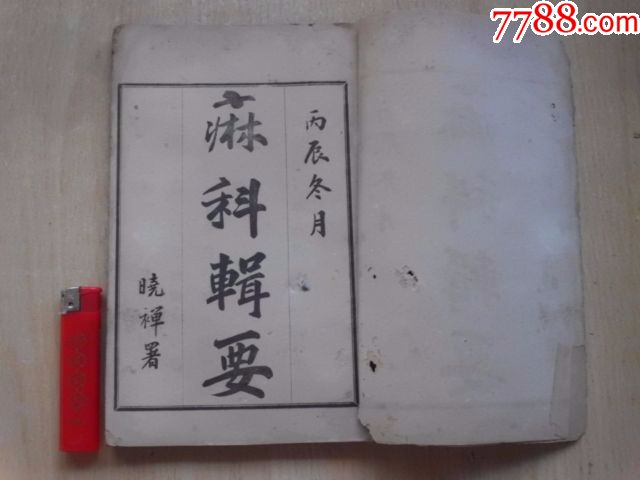 7788.com
丙辰冬月
痳科輯要
曉禪署